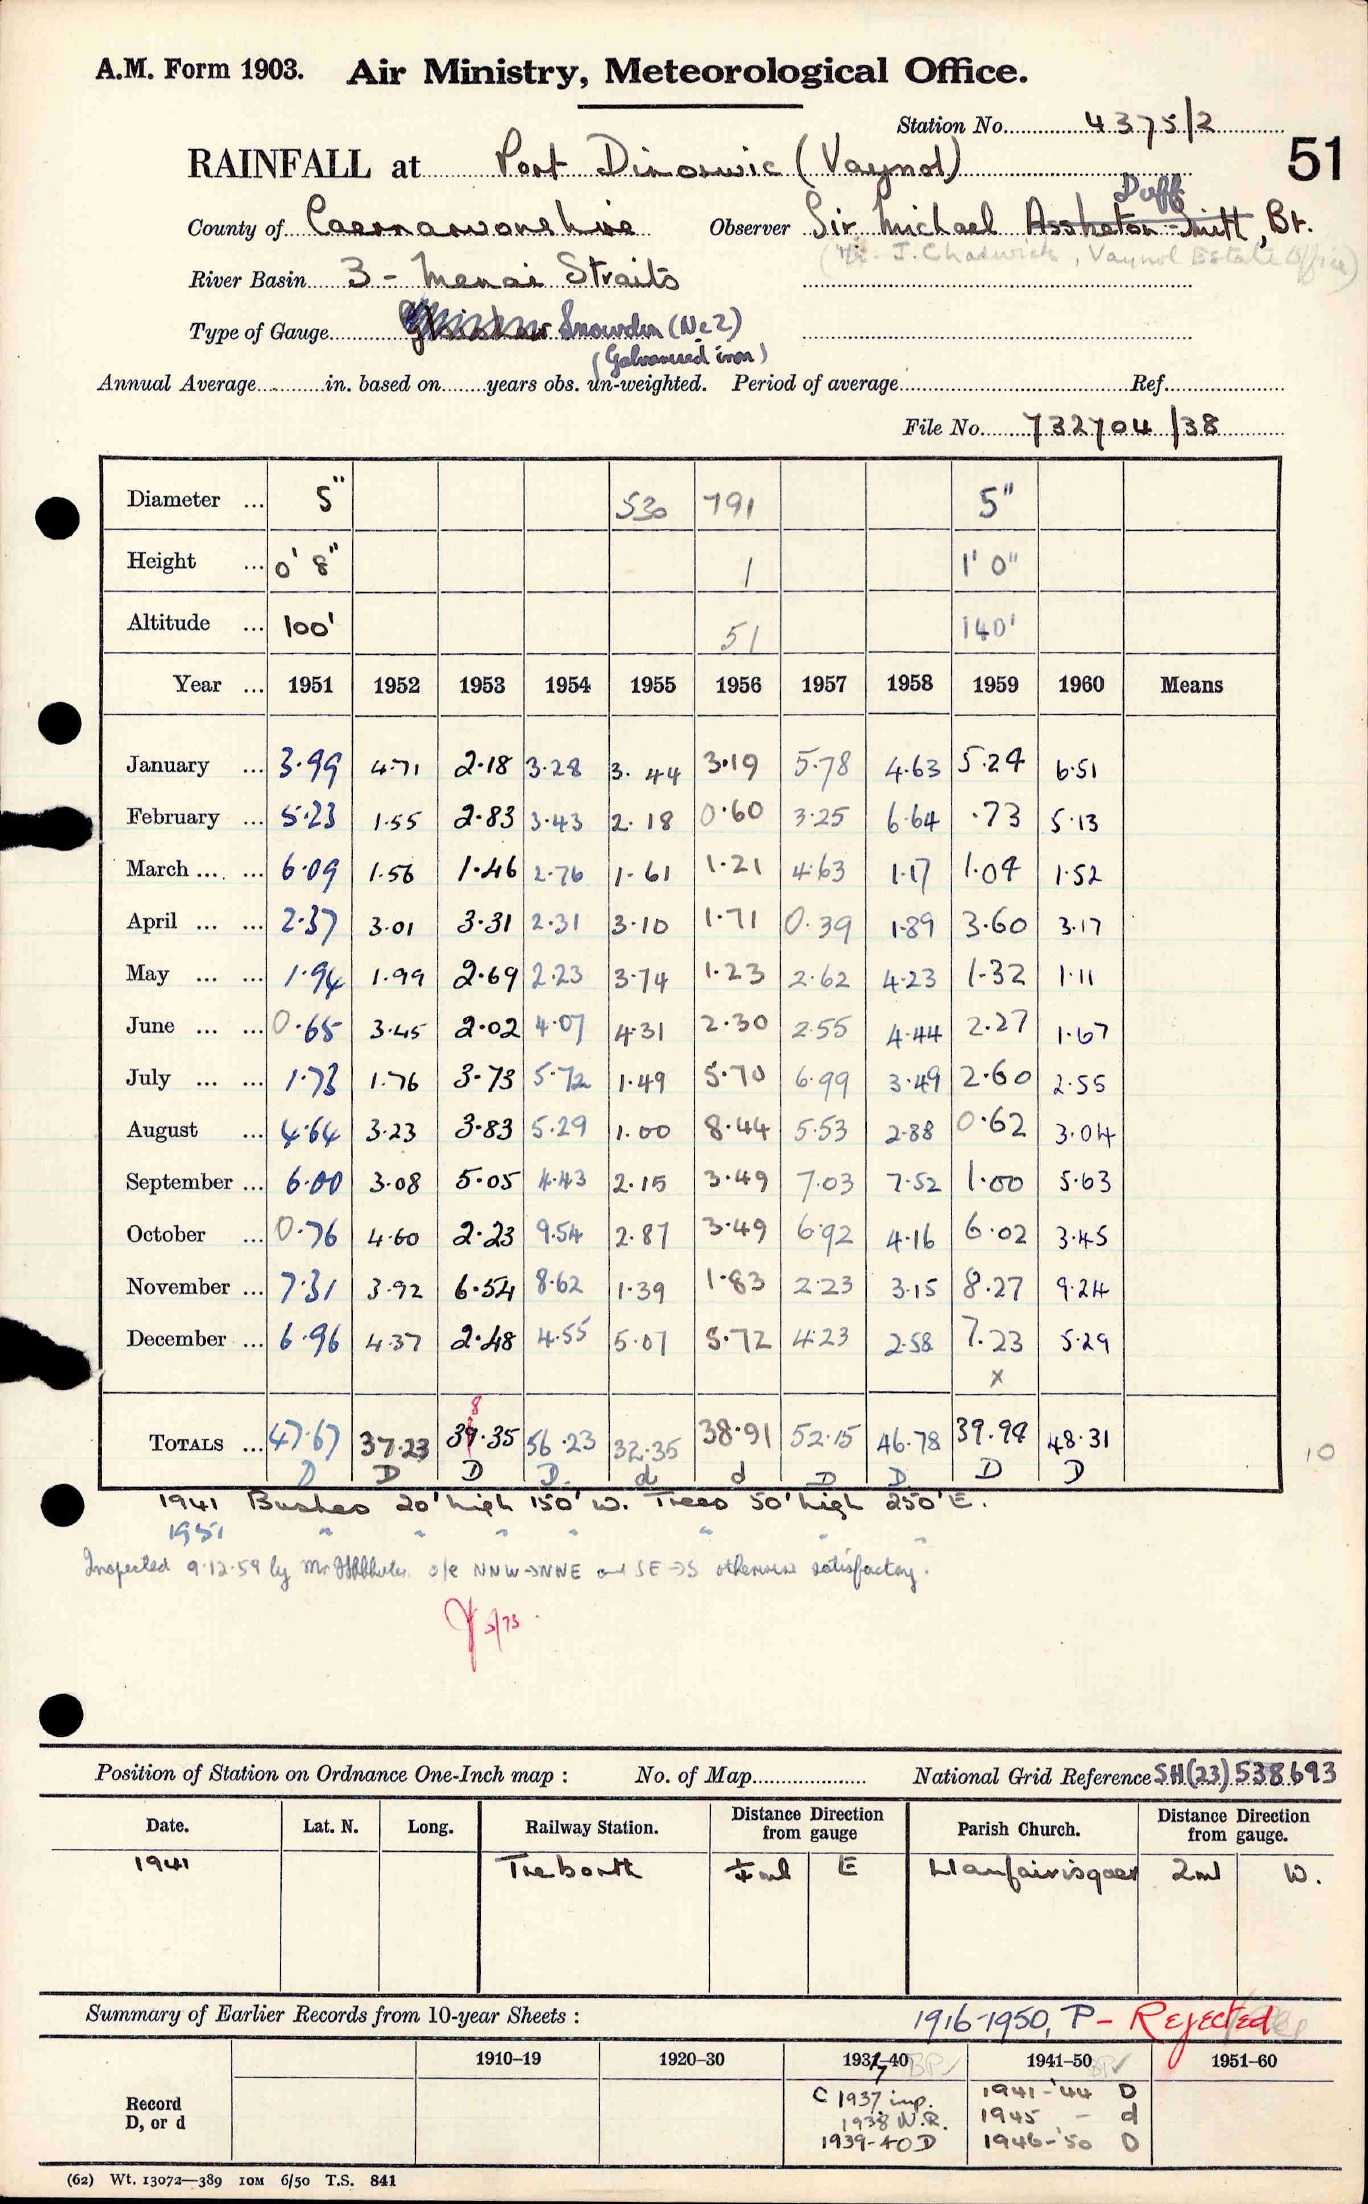 A.M. Form 1903. Air Ministry, Meteorological Office.
Station No. 4375/2
51
RAINFALL at Port Dinorwic (Vaynol)
Duff
County of Caernarvonshire Observer Sir Michael Assheton-Smith, Bt.
(Mr. J. Chadwick, Vaynol Estate Office)
River Basin 3 - Menai Straits
Type of Gauge Snowdon (No 2)
(Galvanised iron)
Annual Average in. based on years obs. un-weighted. Period of average Ref.
File No. 732704/38
Diameter ... 5" 530 791 5"
Height ... 0' 8" 1 1' 0"
Altitude ... 100' 51 140'
Year ... 1951 1952 1953 1954 1955 1956 1957 1958 1959 1960 Means
January ... 3.99 4.71 2.18 3.28 3.44 3.19 5.78 4.63 5.24 6.51
February ... 5.23 1.55 2.83 3.43 2.18 0.60 3.25 6.64 .73 5.13
March ... ... 6.09 1.56 1.46 2.76 1.61 1.21 4.63 1.17 1.09 1.52
April ... ... 2.37 3.01 3.31 2.31 3.10 1.71 0.39 1.89 3.60 3.17
May ... ... 1.94 1.99 2.69 2.23 3.74 1.23 2.62 4.23 1.32 1.11
June ... ... 0.65 3.45 2.02 4.07 4.31 2.30 2.55 4.44 2.27 1.67
July ... ... 1.73 1.76 3.73 5.72 1.49 5.70 6.99 3.49 2.60 2.55
August ... 4.64 3.23 3.83 5.29 1.00 8.44 5.53 2.88 0.62 3.04
September ... 6.00 3.08 5.05 4.43 2.15 3.49 7.03 7.52 1.00 5.63
October ... 0.76 4.60 2.23 9.54 2.87 3.49 6.92 4.16 6.02 3.45
November ... 7.31 3.92 6.54 8.62 1.39 1.83 2.23 3.15 8.27 9.24
December ... 6.96 4.37 2.48 4.55 5.07 5.72 4.23 2.58 7.23 5.29
x
8
TOTALS ... 47.67 37.23 39.35 56.23 32.35 38.91 52.15 46.78 39.99 48.31 10
D D D D. d d D D D D
1941 Bushes 20' high 150' W. Trees 50' high 250' E.
1951 " " " " " " "
Inspected 9.12.59 by Mr o/e NNW->NNE and SE->S otherwise satisfactory.
3/73
Position of Station on Ordnance One-Inch map : No. of Map National Grid Reference SH(23)538693
Date. Lat. N. Long. Railway Station. Distance Direction from gauge Parish Church. Distance Direction from gauge.
1941 Treborth ¼ ml E Llanfairisgaer 2ml W.
Summary of Earlier Records from 10-year Sheets : 1916-1950, P - Rejected
1910–19 1920–30 1937–40 1941–50 1951–60
Record D, or d
C 1937 imp. 1941-'44 D
1938 N.R. 1945 - d
1939-40 D 1946-'50 D
(62) Wt. 13072—389 10M 6/50 T.S. 841